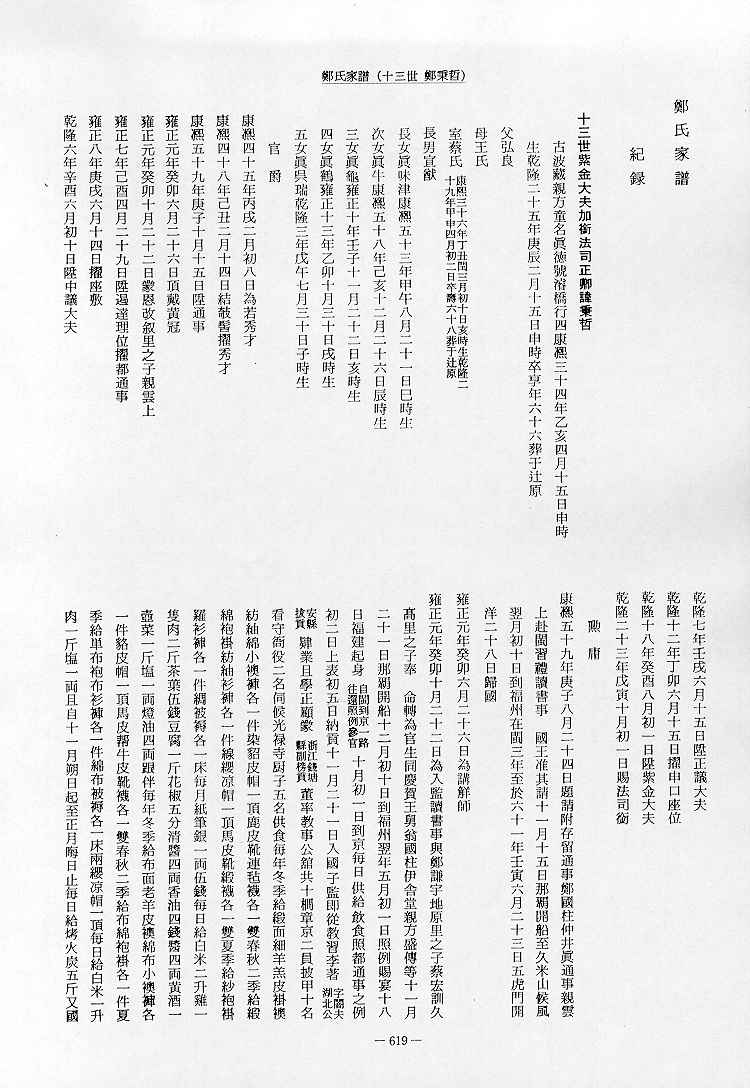 鄭氏家譜（十三世 鄭秉哲）
鄭氏家譜
紀録
十三世紫金大夫加銜法司正卿諱秉哲
古波藏親方童名眞德號濬橋行四康熙三十四年乙亥四月十五日申時
生乾隆二十五年庚辰二月十五日申時卒享年六十六葬于辻原
父弘良
母王氏
室蔡氏 康熙三十六年丁丑閏三月初十日亥時生乾隆二
十九年甲申四月初二日卒壽六十八葬于辻原
長男宣猷
長女眞味津康熙五十三年甲午八月二十一日巳時生
次女眞牛康熙五十八年己亥十二月二十六日辰時生
三女眞龜雍正十年壬子十一月二十二日亥時生
四女眞鶴雍正十三年乙卯十月三十日戌時生
五女眞呉瑞乾隆三年戊午七月三十日子時生
官爵
康熙四十五年丙戌二月初八日為若秀才
康熙四十八年己丑二月十四日結敧髻擢秀才
康熙五十九年庚子十月十五日陞通事
雍正元年癸卯六月二十六日頂戴黄冠
雍正元年癸卯十月二十二日蒙恩改叙里之子親雲上
雍正七年己酉四月二十九日陞遏達理位擢都通事
雍正八年庚戌六月十四日擢座敷
乾隆六年辛酉六月初十日陞中議大夫
乾隆七年壬戌六月十五日陞正議大夫
乾隆十二年丁卯六月十五日擢申口座位
乾隆十八年癸酉八月初一日陞紫金大夫
乾隆二十三年戊寅十月初一日賜法司銜
勲庸
康熙五十九年庚子八月二十四日題請附存留通事鄭國柱仲井眞通事親雲
上赴閩習禮讀書事 國王准其請十一月十五日那覇開船至久米山候風
翌月初十日到福州在閩三年至於六十一年壬寅六月二十三日五虎門開
洋二十八日歸國
雍正元年癸卯六月二十六日為講解師
雍正元年癸卯十月二十二日為入監讀書事與鄭謙宇地原里之子蔡宏訓久
髙里之子奉 命轉為官生同慶賀王舅翁國柱伊舎堂親方盛傳等十一月
二十一日那覇開船十二月初十日到福州翌年五月初一日照例賜宴十八
日福建起身 自閩到京一路
往還照例參官 十月初一日到京毎日供給飲食照都通事之例
初二日上表初五日納貢十一月二十一日入國子監即從教習李著 字闇夫
湖北公
安縣
拔貢 肄業且學正顧𮐃 浙江錢塘
縣副榜貢 董率教事公舘共十櫚章京二員披甲十名
看守衙役二名伺候光禄寺厨子五名供食毎年冬季給緞面細羊羔皮褂襖
紡紬綿小襖褲各一件染貂皮帽一頂鹿皮靴連毡襪各一雙春秋二季給緞
綿袍褂紡紬衫褲各一件線纓凉帽一頂馬皮靴緞襪各一雙夏季給紗袍褂
羅衫褲各一件綢被褥各一床毎月紙筆銀一両伍錢毎日給白米二升雞一
隻肉二斤茶葉伍錢豆腐一斤花椒五分清醬四両香油四錢醬四両黄酒一
壺菜一斤塩一両燈油四両跟伴毎年冬季給布面老羊皮襖綿布小襖褲各
一件貉皮帽一頂馬皮靴牛皮靴襪各一雙春秋二季給布綿袍褂各一件夏
季給単布袍布衫褲各一件綿布被褥各一床兩纓凉帽一頂毎日給白米一升
肉一斤塩一両且自十一月朔日起至正月晦日止毎日給烤火炭五斤又國
— 619 —